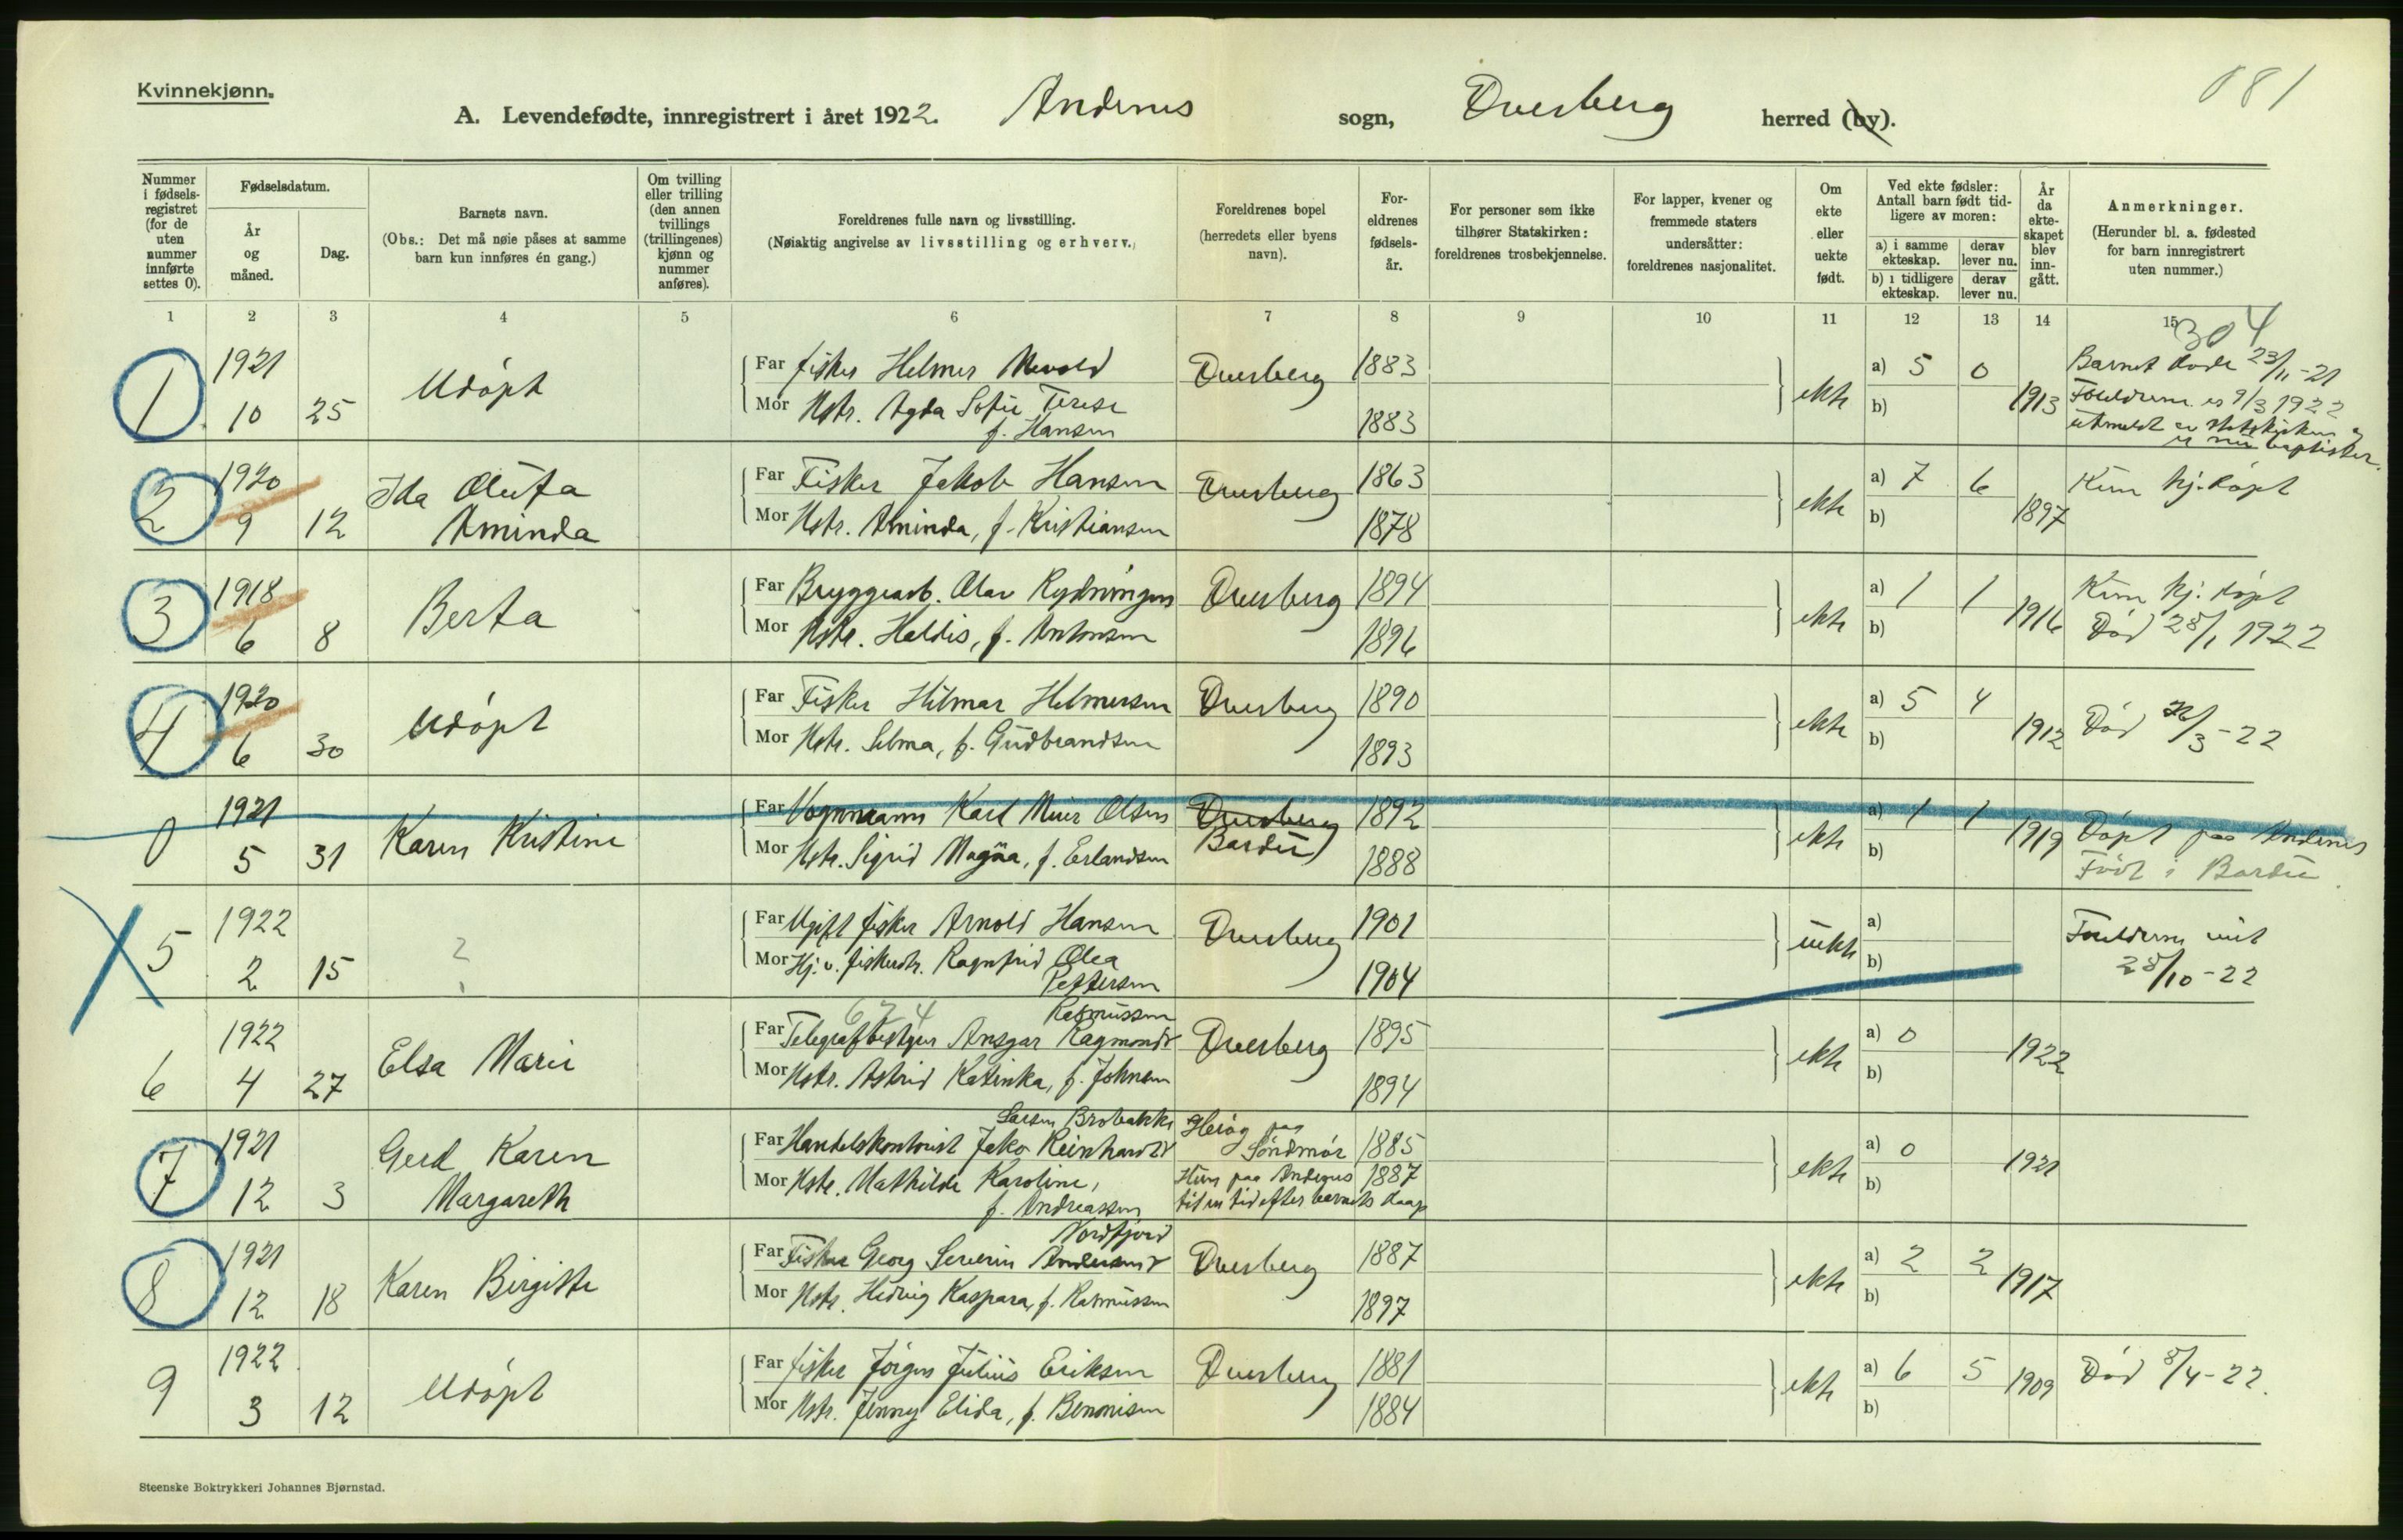 Kvinnekjønn.
081
A. Levendefødte, innregistrert i året 1922. Andenes sogn, Dverberg herred (by).
Nummer i fødselsregistret (for de uten nummer innførte settes 0).
Fødselsdatum.
År og måned.
Dag.
Barnets navn.
(Obs.: Det må nøie påses at samme barn kun innføres én gang.)
Om tvilling eller trilling (den annen tvillings (trillingenes) kjønn og nummer anføres).
Foreldrenes fulle navn og livsstilling.
(Nøiaktig angivelse av livsstilling og erhverv.)
Foreldrenes bopel (herredets eller byens navn).
Foreldrenes fødselsår.
For personer som ikke tilhører Statskirken: foreldrenes trosbekjennelse.
For lapper, kvener og fremmede staters undersåtter: foreldrenes nasjonalitet.
Om ekte eller uekte født.
Ved ekte fødsler: Antall barn født tidligere av moren:
a) i samme ekteskap.
derav lever nu.
b) i tidligere ekteskap.
derav lever nu.
År da ekteskapet blev inngått.
Anmerkninger.
(Herunder bl. a. fødested for barn innregistrert uten nummer.)
1 2 3 4 5 6 7 8 9 10 11 12 13 14 15
304
1 1921 10 25 Udöpt
Far fisker Helmer Mevold Dverberg 1883
Mor Hstr. Agda Sofie Terese f. Hansen 1883
ekte a) 5 0 b) 1913
Barnet döde 23/11-21
Foreldrene er 9/3 1922
utmeldt av statskirken og
er nu baptister.
2 1920 9 12 Ida Olufa Aminda
Far Fisker Jakob Hansen Dverberg 1863
Mor Hstr. Aminda, f. Kristiansen 1878
ekte a) 7 6 b) 1897
Kun hj. döpt
3 1918 6 8 Berta
Far Bryggearb. Olav Rydningen Dverberg 1894
Mor Hstr. Haldis, f. Antonsen 1896
ekte a) 1 1 b) 1916
Kun hj. döpt
Död 28/1 1922
4 1920 6 30 Udöpt
Far Fisker Hilmar Helmersen Dverberg 1890
Mor Hstr. Selma, f. Gudbrandsen 1893
ekte a) 5 4 b) 1912
Död /3-22
0 1921 5 31 Karen Kristine
Far Vognmann Karl Olsen Dverberg Bardu 1892
Mor Hstr. Sigrid Magna, f. Erlandsen 1888
ekte a) 1 1 b) 1919
Döpt paa Andenes
Född i Bardu.
5 1922 2 15 ?
Far Ugift fisker Arnold Hansen Dverberg 1901
Mor Hj. v. fiskerdtr. Ragnfrid Olea Pettersen 1904
uekte a) b)
Foreldrene viet
28/10-22
674
6 1922 4 27 Elsa Marie
Rasmussen
Far Telegrafbestyrer Ansgar Ragmondr Dverberg 1895
Mor Hstr. Astrid Katinka, f. Johnsen 1894
ekte a) 0 b) 1922
7 1921 12 3 Gerd Karen Margareth
Larsen Brobakke
Far Handelskontorist Jako Reinhardt Heröy paa Söndmör 1885
Mor Hstr. Mathilde Karoline, f. Andreassen 1887
Hun paa Andenes
til en tid efter barnets daap
ekte a) 0 b) 1921
8 1921 12 18 Karen Birgitte
Nordfjord
Far Fisker Georg Severin Andersen Dverberg 1887
Mor Hstr. Hedvig Kaspara, f. Rasmussen 1897
ekte a) 2 2 b) 1917
9 1922 3 12 Udöpt
Far fisker Jörgen Julius Eriksen Dverberg 1881
Mor Hstr. Jenny Elida, f. Benonisen 1884
ekte a) 6 5 b) 1909
Död 8/4-22.
Steenske Boktrykkeri Johannes Bjørnstad.